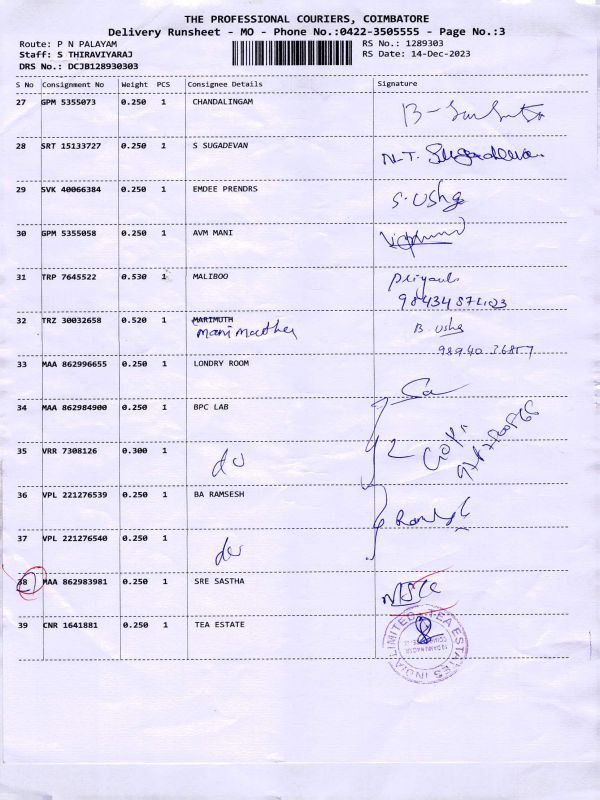 THE PROFESSIONAL COURIERS, COIMBATORE
Delivery Runsheet - MO - Phone No.:0422-3505555 - Page No.:3
Route: P N PALAYAM RS No.: 1289303
Staff: S THIRAVIYARAJ RS Date: 14-Dec-2023
DRS No.: DCJB128930303
S No Consignment No Weight PCS Consignee Details Signature
27 GPM 5355073 0.250 1 CHANDALINGAM
28 SRT 15133727 0.250 1 S SUGADEVAN N.T. Sugadevan
29 SVK 40066384 0.250 1 EMDEE PRENDRS S. Usha
30 GPM 5355058 0.250 1 AVM MANI
31 TRP 7645522 0.530 1 MALIBOO
32 TRZ 30032658 0.520 1 MARIMUTH B. Usha
33 MAA 862996655 0.250 1 LONDRY ROOM
34 MAA 862984900 0.250 1 BPC LAB
35 VRR 7308126 0.300 1 do
36 VPL 221276539 0.250 1 BA RAMSESH
37 VPL 221276540 0.250 1 do
38 MAA 862983981 0.250 1 SRE SASTHA
39 CNR 1641881 0.250 1 TEA ESTATE
TEA ESTATES INDIA LIMITED